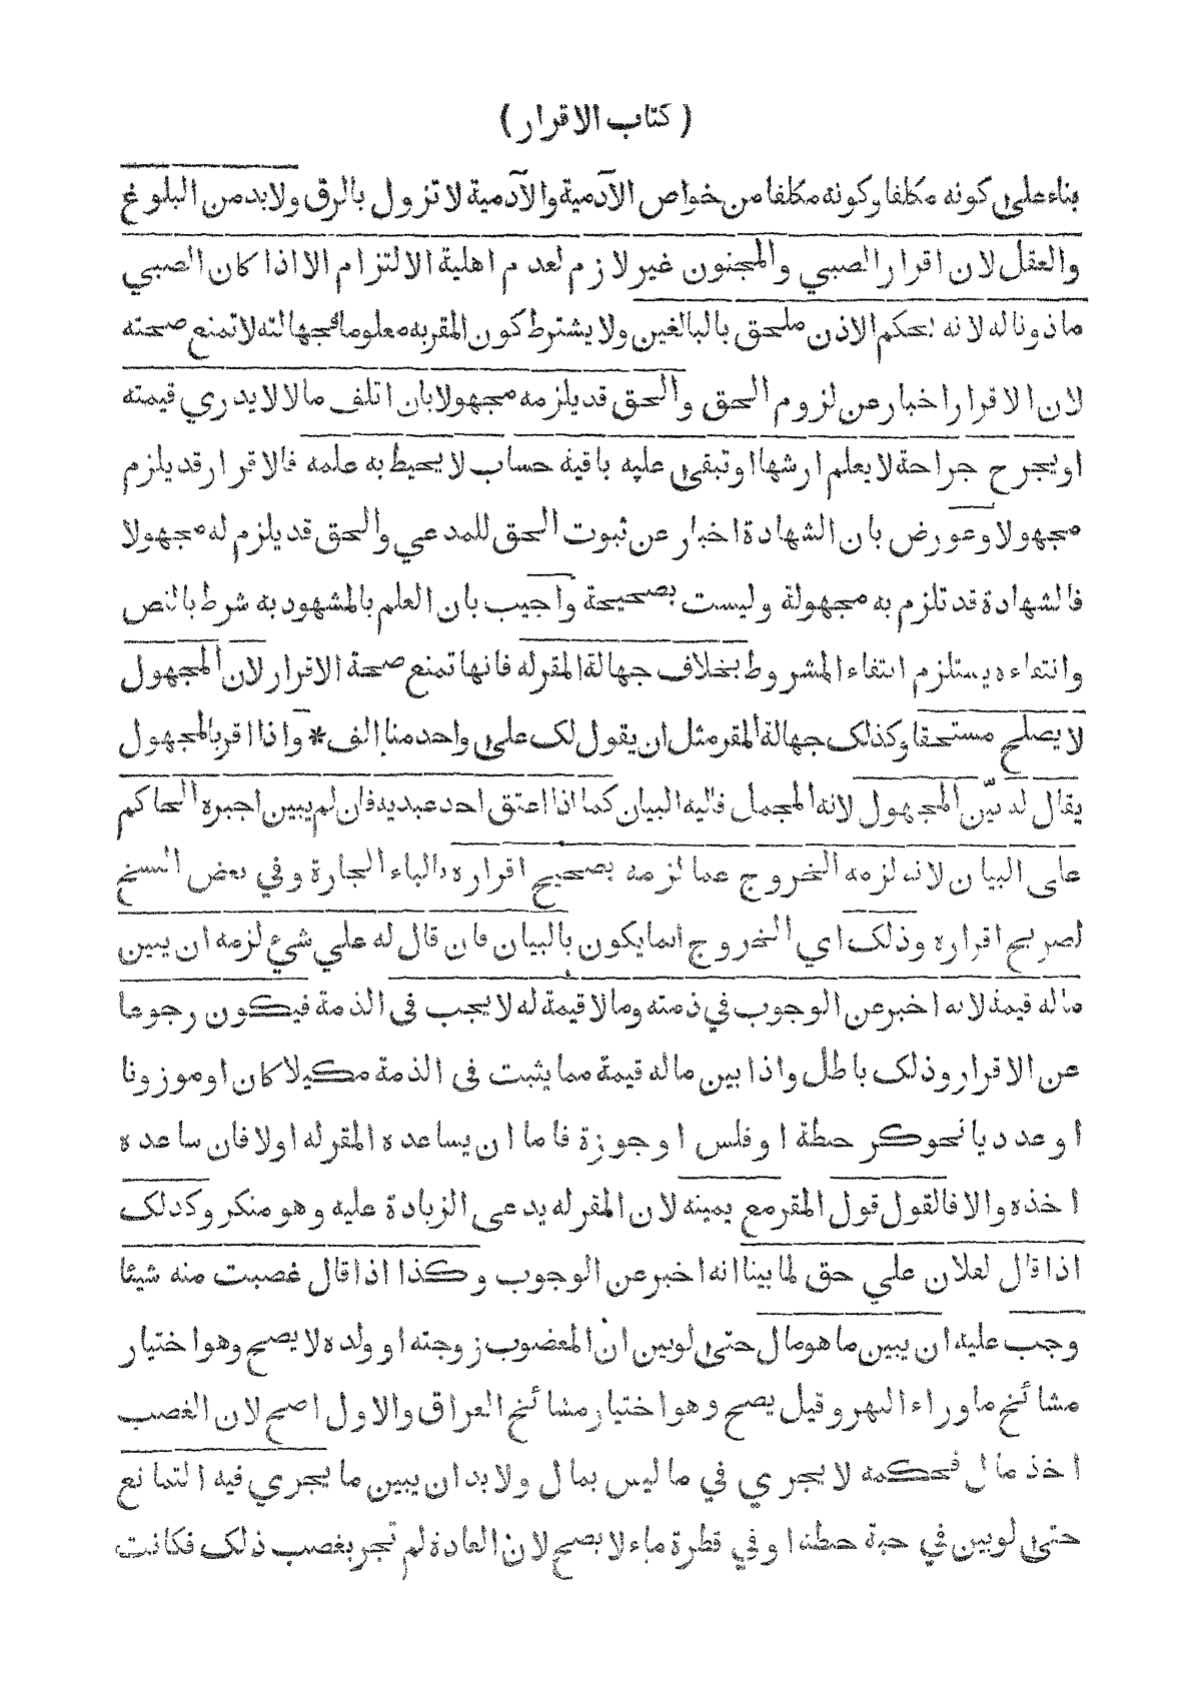 ( كتاب الاقرار )
بناء على كونه مكلفا وكونه مكلفا من خواص الآدمية والآدمية لا تزول بالرق ولابد من البلوغ
والعقل لان اقرار الصبي والمجنون غير لازم لعدم اهلية الالتزام الا اذا كان الصبي
ماذونا له لانه بحكم الاذن ملحق بالبالغين ولا يشترط كون المقربه معلوما فجهالته لا تمنع صحته
لان الاقرار اخبار عن لزوم الحق والحق قد يلزمه مجهولا بان اتلف مالا لا يدري قيمته
او يجرح جراحة لا يعلم ارشها او تبقى عليه باقية حساب لا يحيط به علمه فالاقرار قد يلزم
مجهولا وعورض بان الشهادة اخبار عن ثبوت الحق للمدعي والحق قد يلزم له مجهولا
فالشهادة قد تلزم به مجهولة وليست بصحيحة واجيب بان العلم بالمشهود به شرط بالنص
وانتفاءه يستلزم انتفاء المشروط بخلاف جهالة المقرله فانها تمنع صحة الاقرار لان المجهول
لا يصلح مستحقا وكذلك جهالة المقر مثل ان يقول لك على واحد منا الف * واذا اقر بالمجهول
يقال له بيّن المجهول لانه المجمل فاليه البيان كما اذا اعتق احد عبديه فان لم يبين اجبره الحاكم
على البيان لانه لزمه الخروج عما لزمه بصحيح اقراره بالباء الجارة وفي بعض النسخ
لصريح اقراره وذلك اي الخروج انما يكون بالبيان فان قال له علي شيء لزمه ان يبين
ماله قيمة لانه اخبر عن الوجوب في ذمته وما لا قيمة له لا يجب فى الذمة فيكون رجوعا
عن الاقرار وذلك باطل واذا بين ماله قيمة مما يثبت فى الذمة مكيلا كان او موزونا
او عدديا نحو كر حطة او فلس او جوزة فاما ان يساعده المقرله اولا فان ساعده
اخذه والا فالقول قول المقر مع يمينه لان المقرله يدعى الزيادة عليه وهو منكر وكذلك
اذا قال لفلان علي حق لما بينا انه اخبر عن الوجوب وكذا اذا قال غصبت منه شيئا
وجب عليه ان يبين ما هو مال حتى لو بين ان المغضوب زوجته او ولده لا يصح وهو اختيار
مشائخ ماوراء النهر وقيل يصح وهو اختيار مشائخ العراق والاول اصح لان الغصب
اخذ مال فحكمه لا يجري في ما ليس بمال ولابد ان يبين ما يجري فيه التمانع
حتى لو بين في حبة حطة او في قطرة ماء لا يصح لان العادة لم تجر بغصب ذلك فكانت